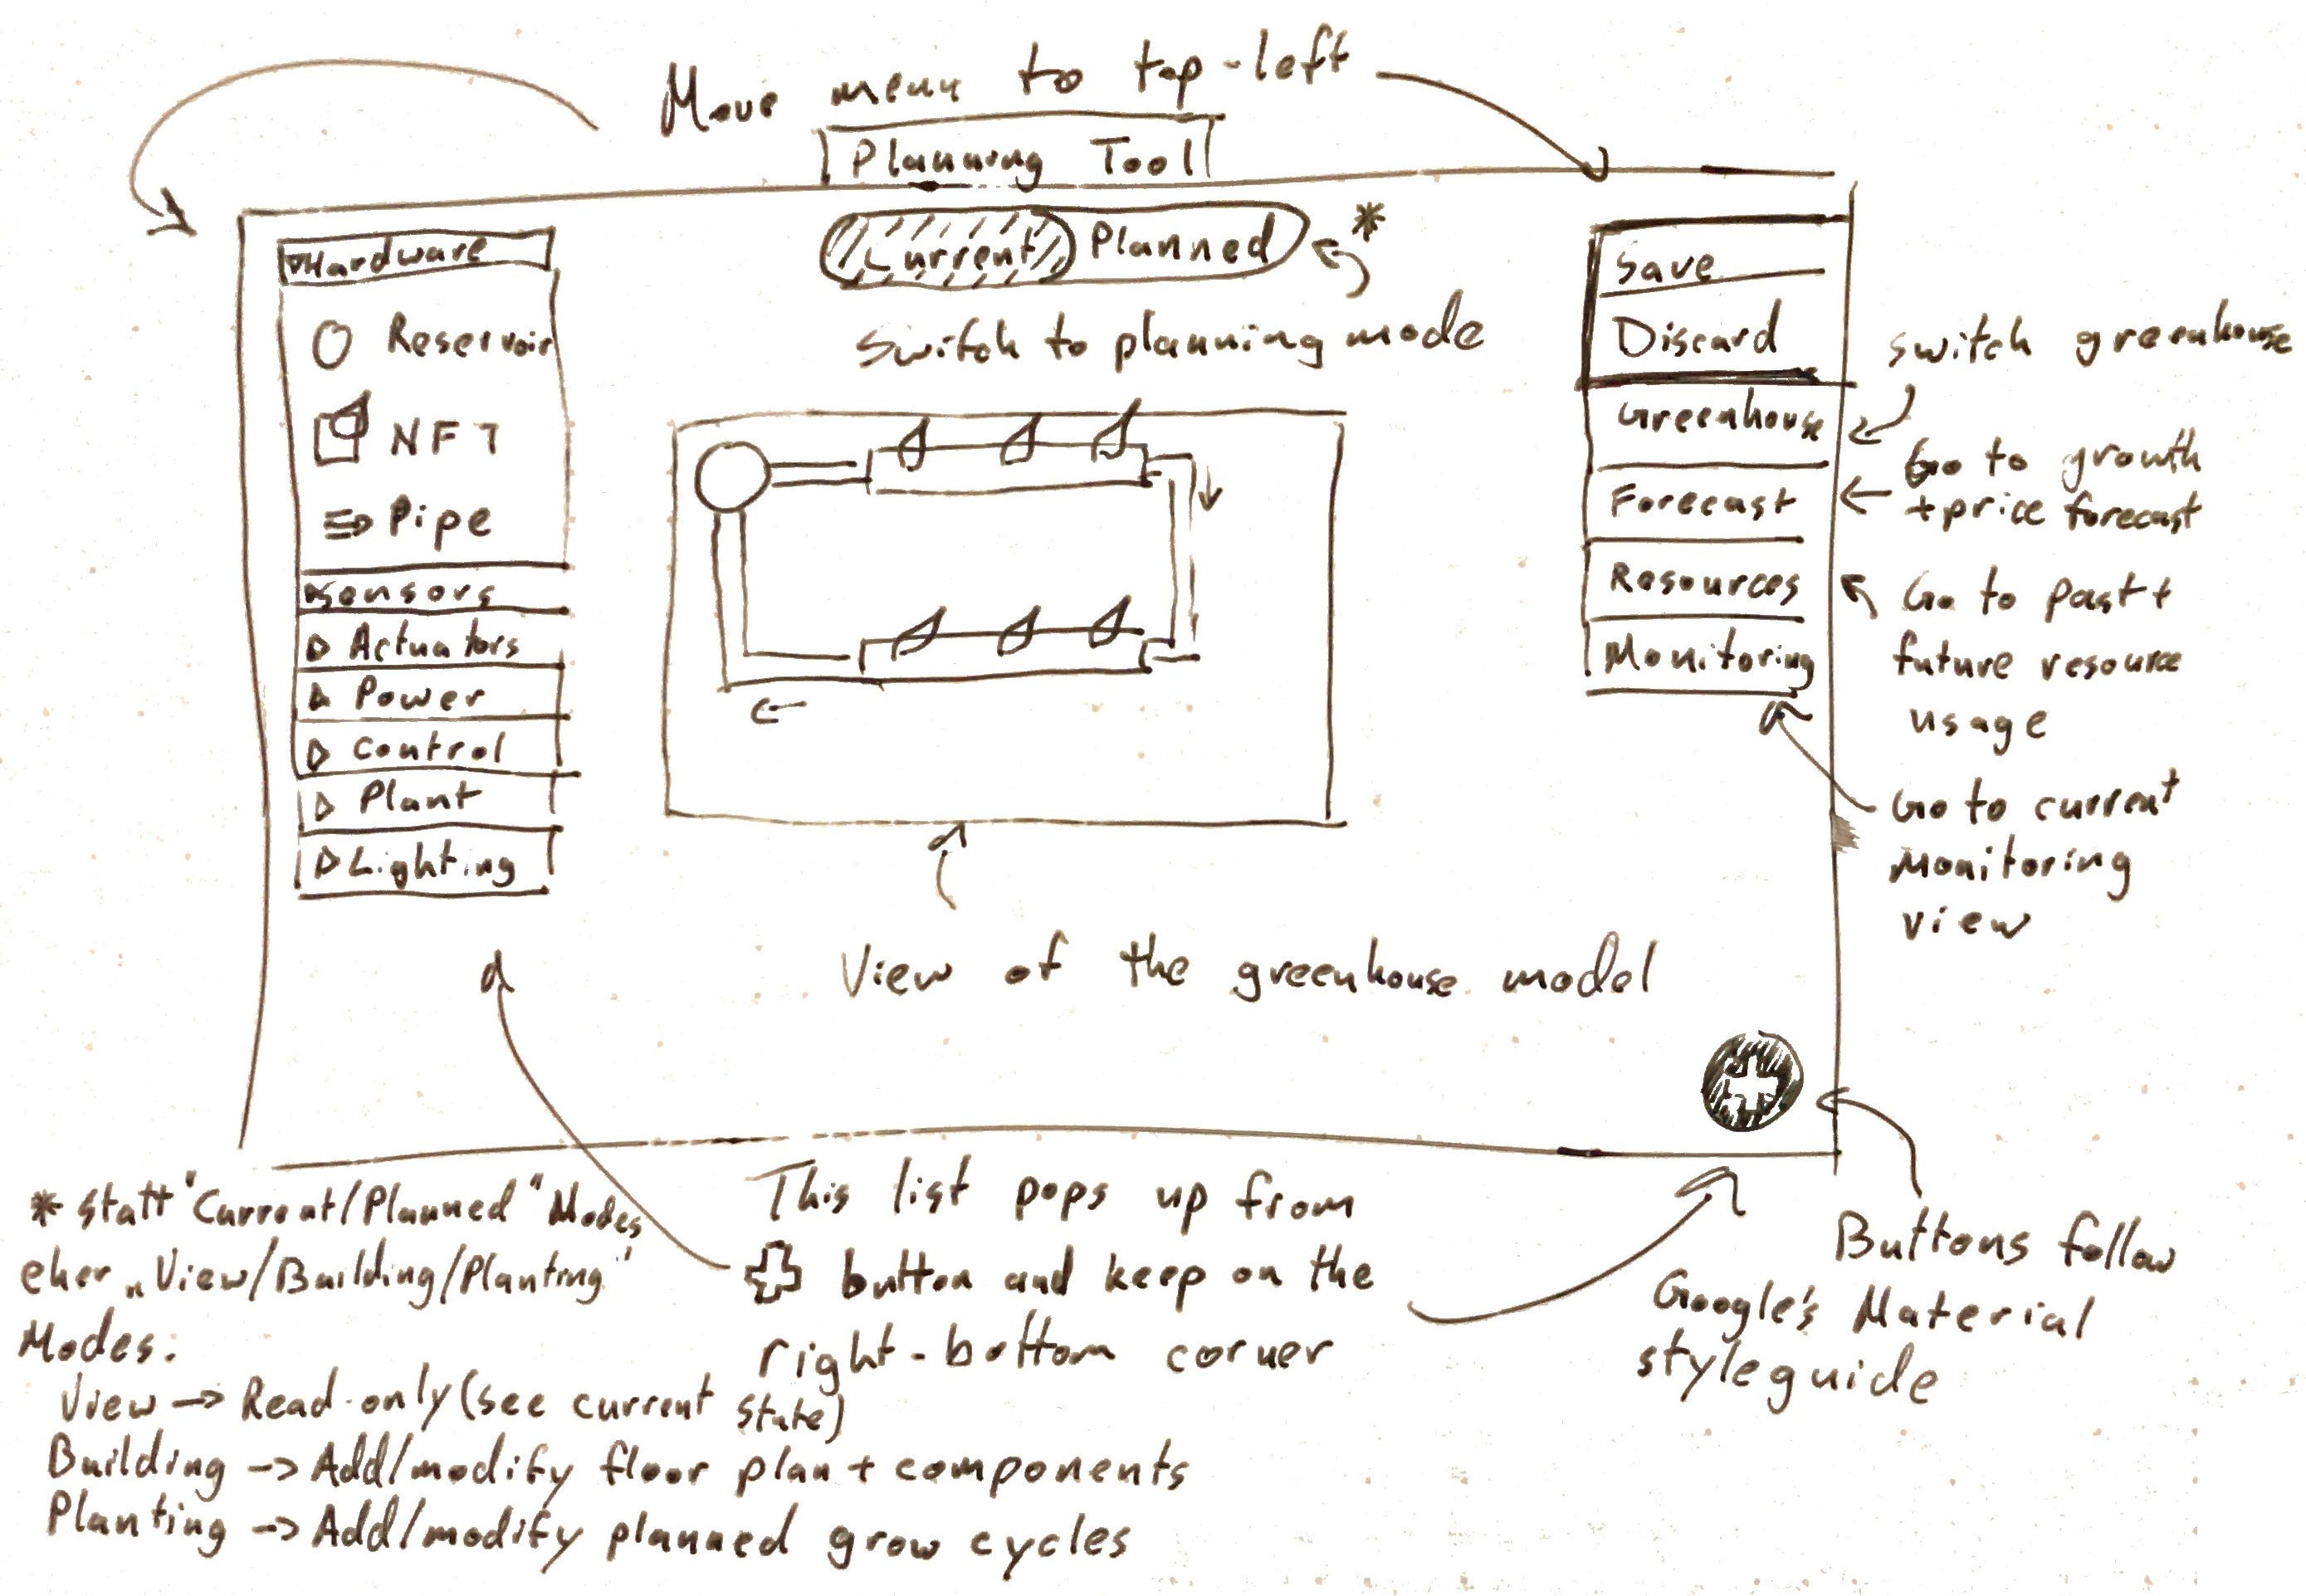 Move menu to top-left
Planning Tool
Current Planned *
Switch to planning mode
Hardware
Reservoir
NFT
Pipe
Sensors
Actuators
Power
Control
Plant
Lighting
Save
Discard
Greenhouse
Forecast
Resources
Monitoring
switch greenhouse
Go to growth
+ price forecast
Go to past +
future resource
usage
Go to current
Monitoring
view
View of the greenhouse model
This list pops up from
button and keep on the
right-bottom corner
Buttons follow
Google's Material
styleguide
* statt "Current/Planned" Modes
eher „View/Building/Planting"
Modes:
View -> Read-only (see current state)
Building -> Add/modify floor plan + components
Planting -> Add/modify planned grow cycles